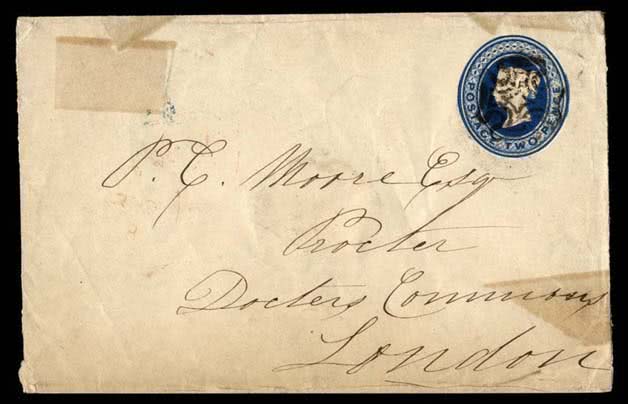 POSTAGE TWO PENCE
P. C. Moore Esq
Procter
Docters Commons
London